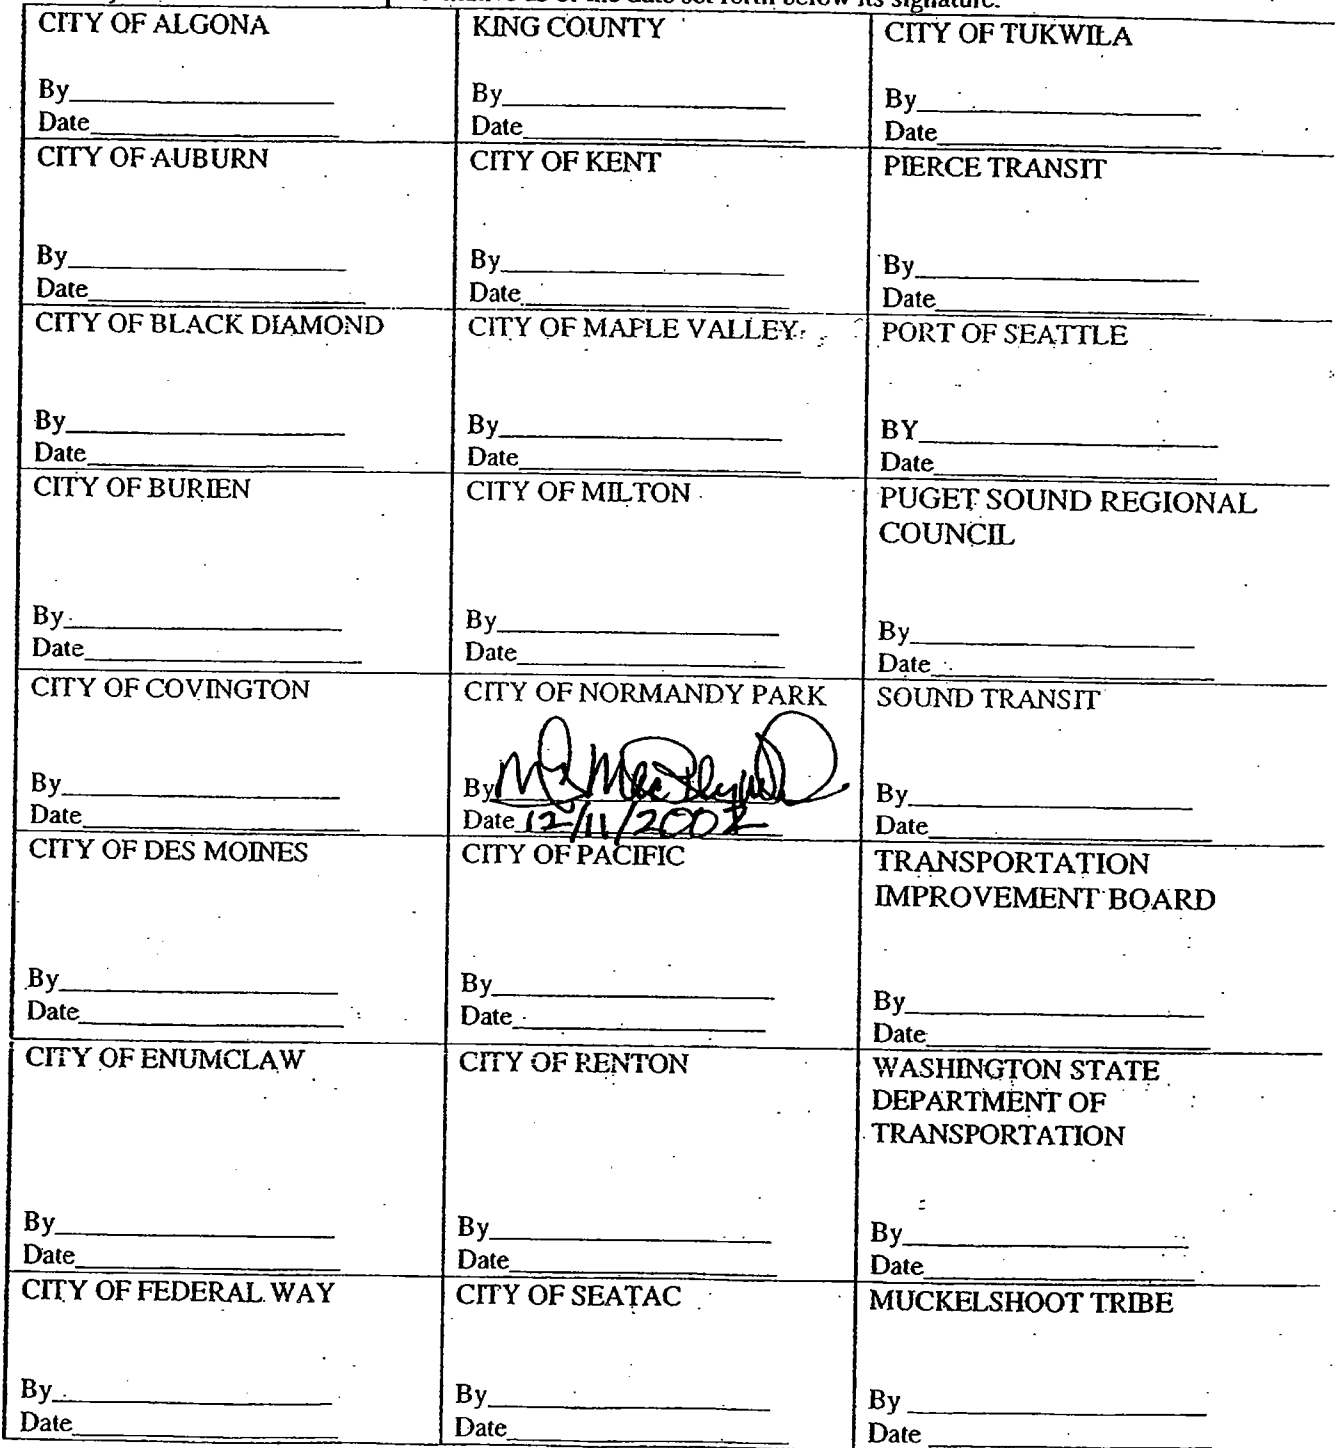 set forth below its signature.
CITY OF ALGONA
By
Date
KING COUNTY
By
Date
CITY OF TUKWILA
By
Date
CITY OF AUBURN
By
Date
CITY OF KENT
By
Date
PIERCE TRANSIT
By
Date
CITY OF BLACK DIAMOND
By
Date
CITY OF MAPLE VALLEY
By
Date
PORT OF SEATTLE
BY
Date
CITY OF BURIEN
By
Date
CITY OF MILTON
By
Date
PUGET SOUND REGIONAL
COUNCIL
By
Date
CITY OF COVINGTON
By
Date
CITY OF NORMANDY PARK
By
Date 12/11/2002
SOUND TRANSIT
By
Date
CITY OF DES MOINES
By
Date
CITY OF PACIFIC
By
Date
TRANSPORTATION
IMPROVEMENT BOARD
By
Date
CITY OF ENUMCLAW
By
Date
CITY OF RENTON
By
Date
WASHINGTON STATE
DEPARTMENT OF
TRANSPORTATION
By
Date
CITY OF FEDERAL WAY
By
Date
CITY OF SEATAC
By
Date
MUCKELSHOOT TRIBE
By
Date